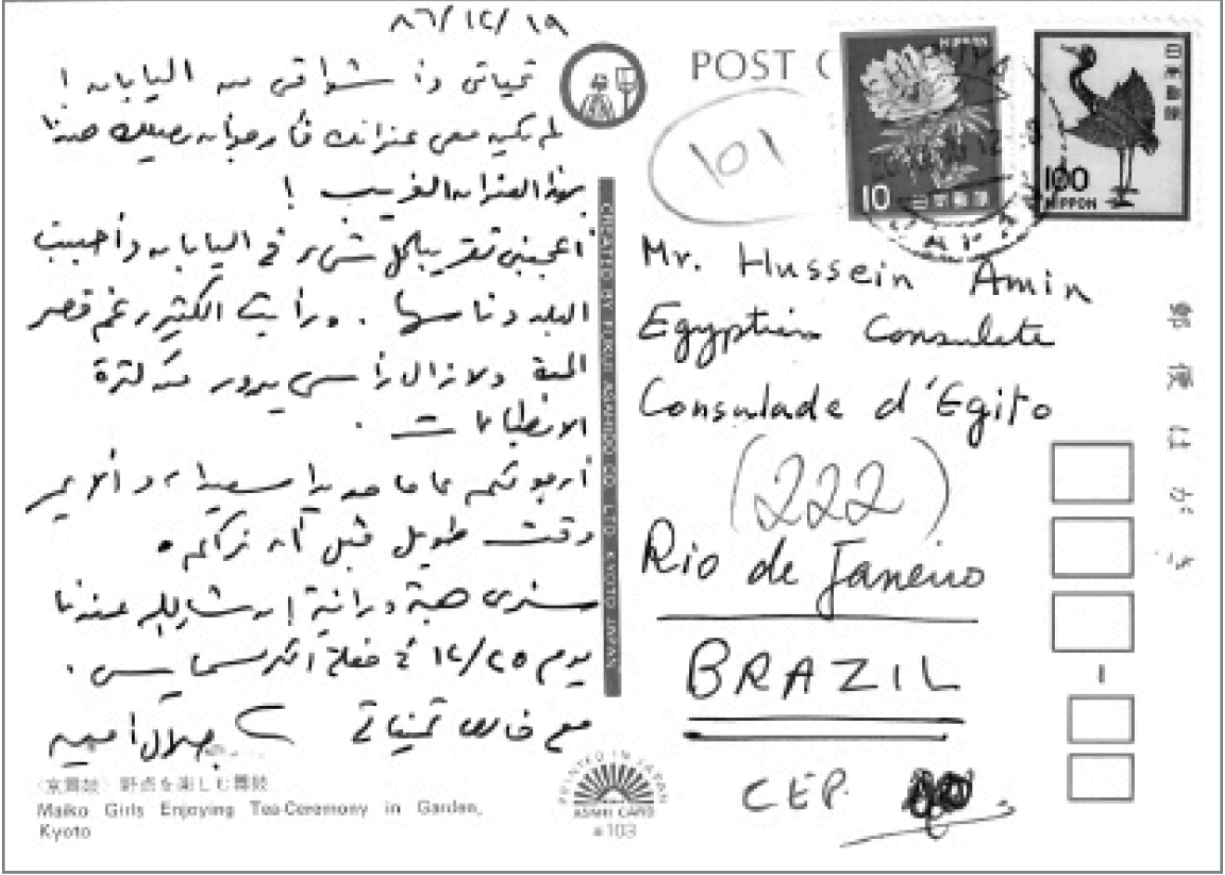 ٨٦/١٢/١٩
تحياتى وأشواقى من اليابان !
لم يكن معى عنوانك فأرجو أن يصلك هذا
بهذا العنوان الغريب !
أعجبنى تقريبا كل شىء فى اليابان وأحببت
البلد وناسها . ورأيت الكثير رغم قصر
المدة ولازال رأسى يدور من كثرة
الانطباعات .
أرجو لكم عاما جديدا سعيدا، وألا يمر
وقت طويل قبل أن نراكم .
سنرى هبة ورانية إن شاء الله عندنا
يوم ١٢/٢٥ فى حفلة الكريسماس .
مع خالص تمنياتى جلال أمين
野点を楽しむ舞妓
Maiko Girls Enjoying Tea-Ceremony in Garden,
Kyoto
CREATED BY FUKUI ASAHIDO CO. LTD. KYOTO JAPAN
PRINTED IN JAPAN
ASAHI CARD
103
POST
10 日本郵便
NIPPON
日本郵便
100
NIPPON
Mr. Hussein Amin
Egyptian Consulate
Consulade d'Egito
(222)
Rio de Janeiro
BRAZIL
CEP.
郵便はがき